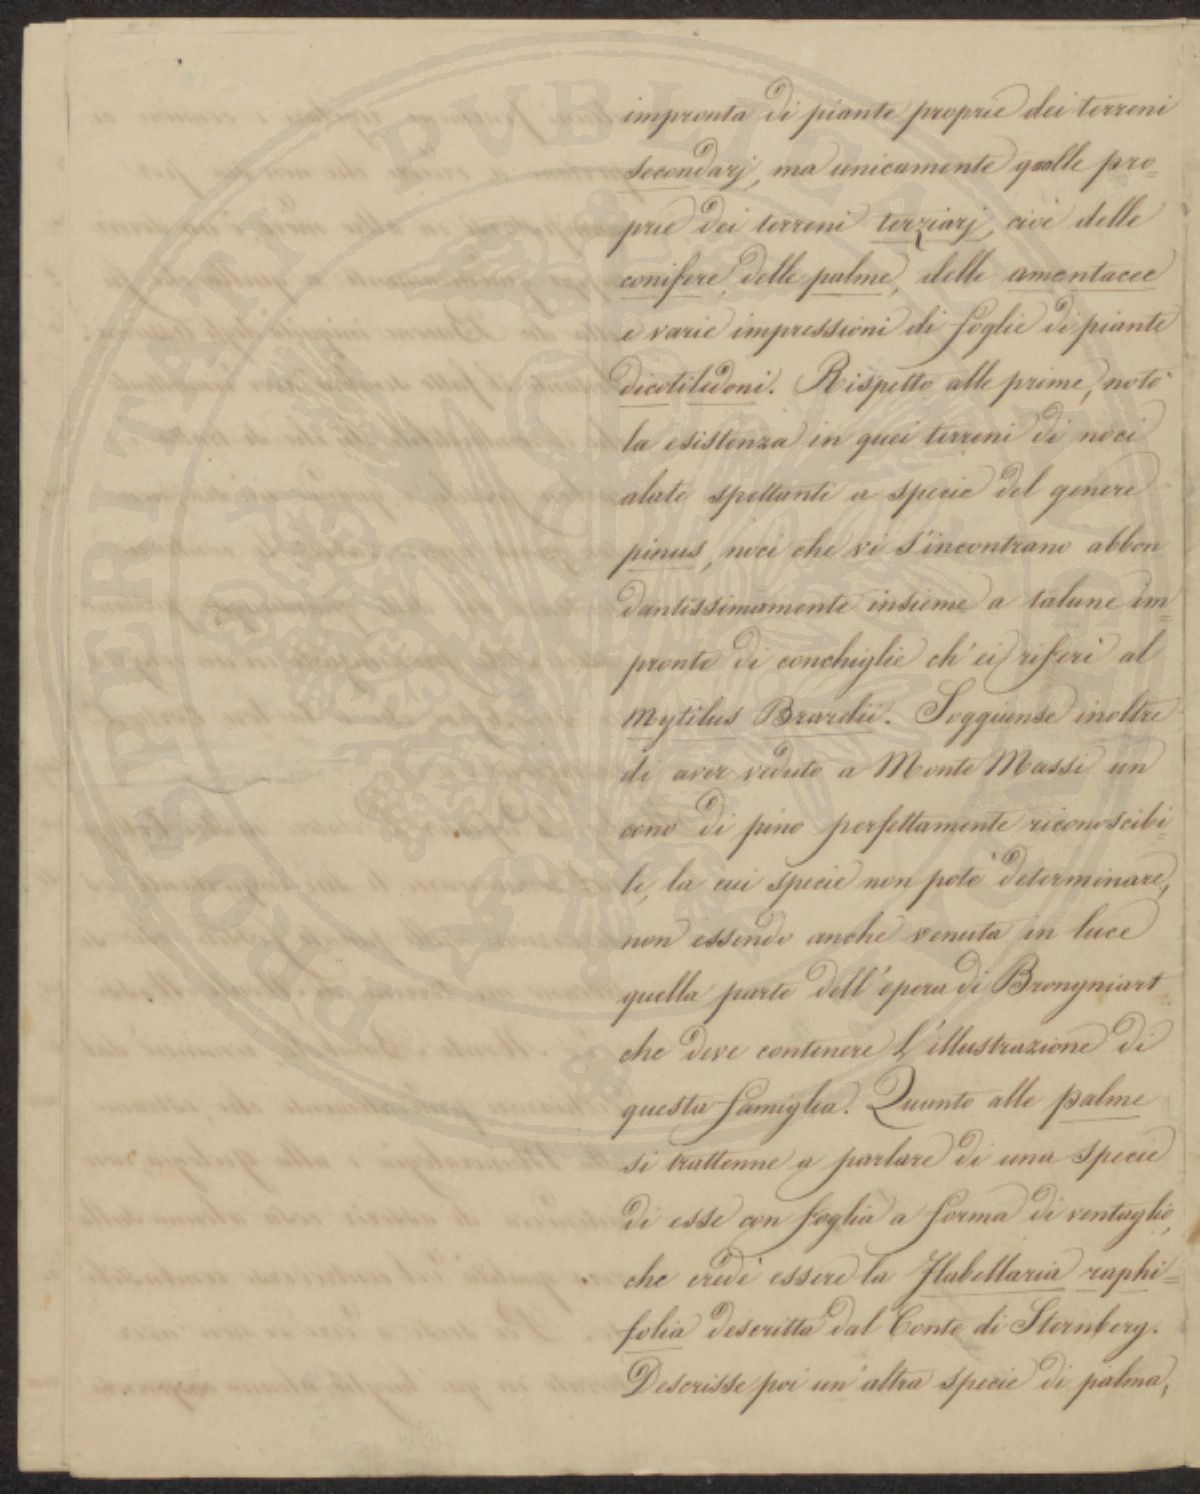 impronta di piante proprie dei terreni
secondarj, ma unicamente quelle pro=
prie dei terreni terziarj, cioè delle
conifere, delle palme, delle amentacee
e varie impressioni di foglie di piante
dicotiledoni. Rispetto alle prime, notò
la esistenza in quei terreni di noci
alate spettanti a specie del genere
pinus, noci che vi s'incontrano abbon
dantissimamente insieme a talune im=
pronte di conchiglie ch'ei riferì al
Mytilus Brardii. Soggiunse inoltre
di aver veduto a Monte Massi un
cono di pino perfettamente riconoscibi=
le, la cui specie non potè determinare,
non essendo anche venuta in luce
quella parte dell'opera di Brongniart
che deve contenere l'illustrazione di
questa famiglia. Quanto alle palme
si trattenne a parlare di una specie
di esse con foglia a forma di ventaglio,
che credè essere la Flabellaria raphi=
folia descritta dal Conte di Sternberg.
Descrisse poi un'altra specie di palma,